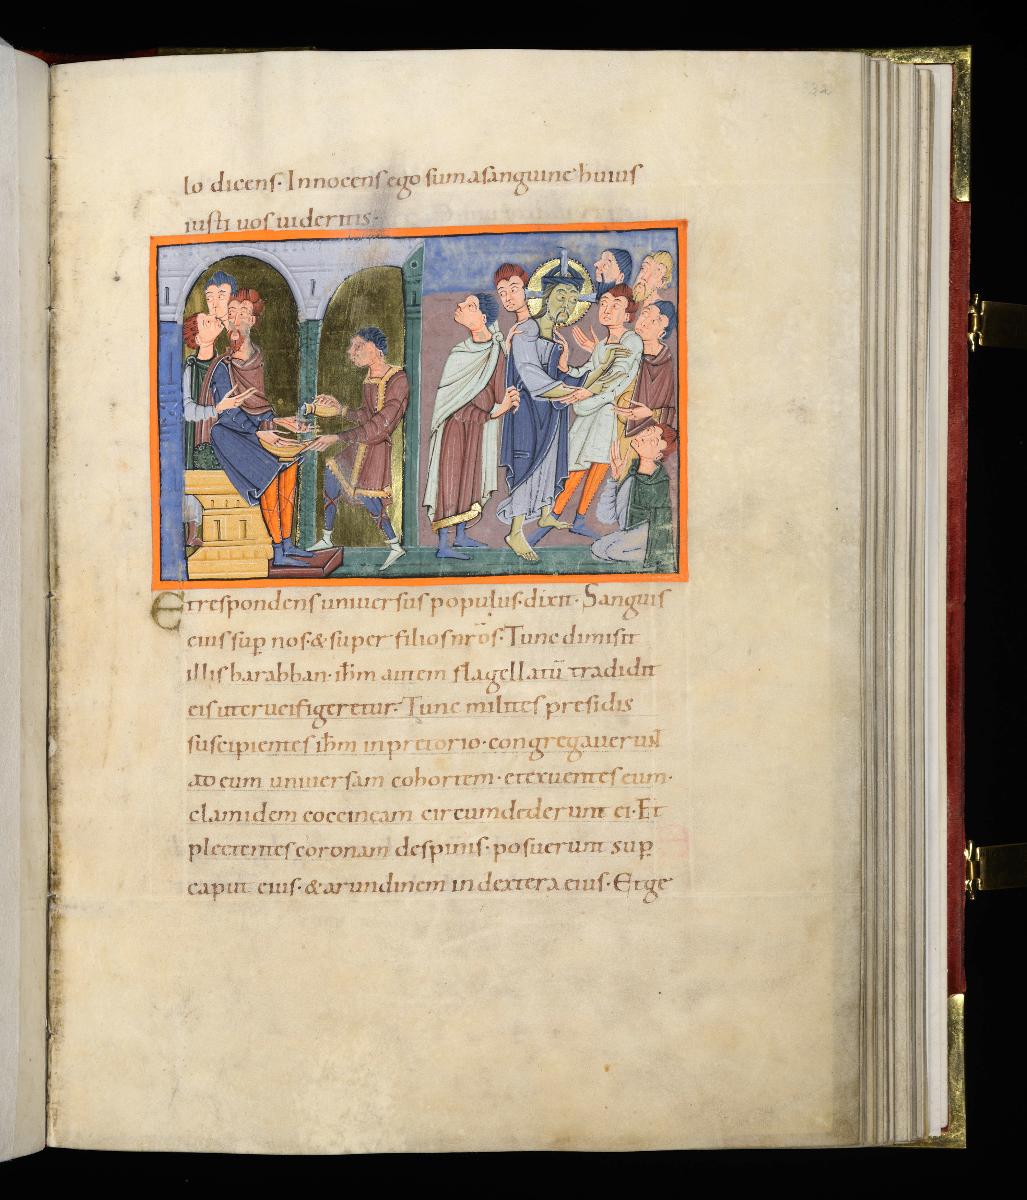 32
lo dicens. Innocens ego sum a sanguine huius
iusti uos uideritis.
Et respondens uniuersus populus dixit. Sanguis
eius sup̱ nos. & super filios nr̄os. Tunc dimisit
illis barabban. ih̄m autem flagellatū tradidit
eis ut crucifigeretur. Tunc milites presidis
suscipientes ih̄m in pretorio. congregauerunt
ad eum uniuersam cohortem. et exuentes eum.
clamidem coccineam circumdederunt ei. Et
plectentes coronam de spinis. posuerunt sup̱
caput eius. & arundinem in dextera eius. Et ge